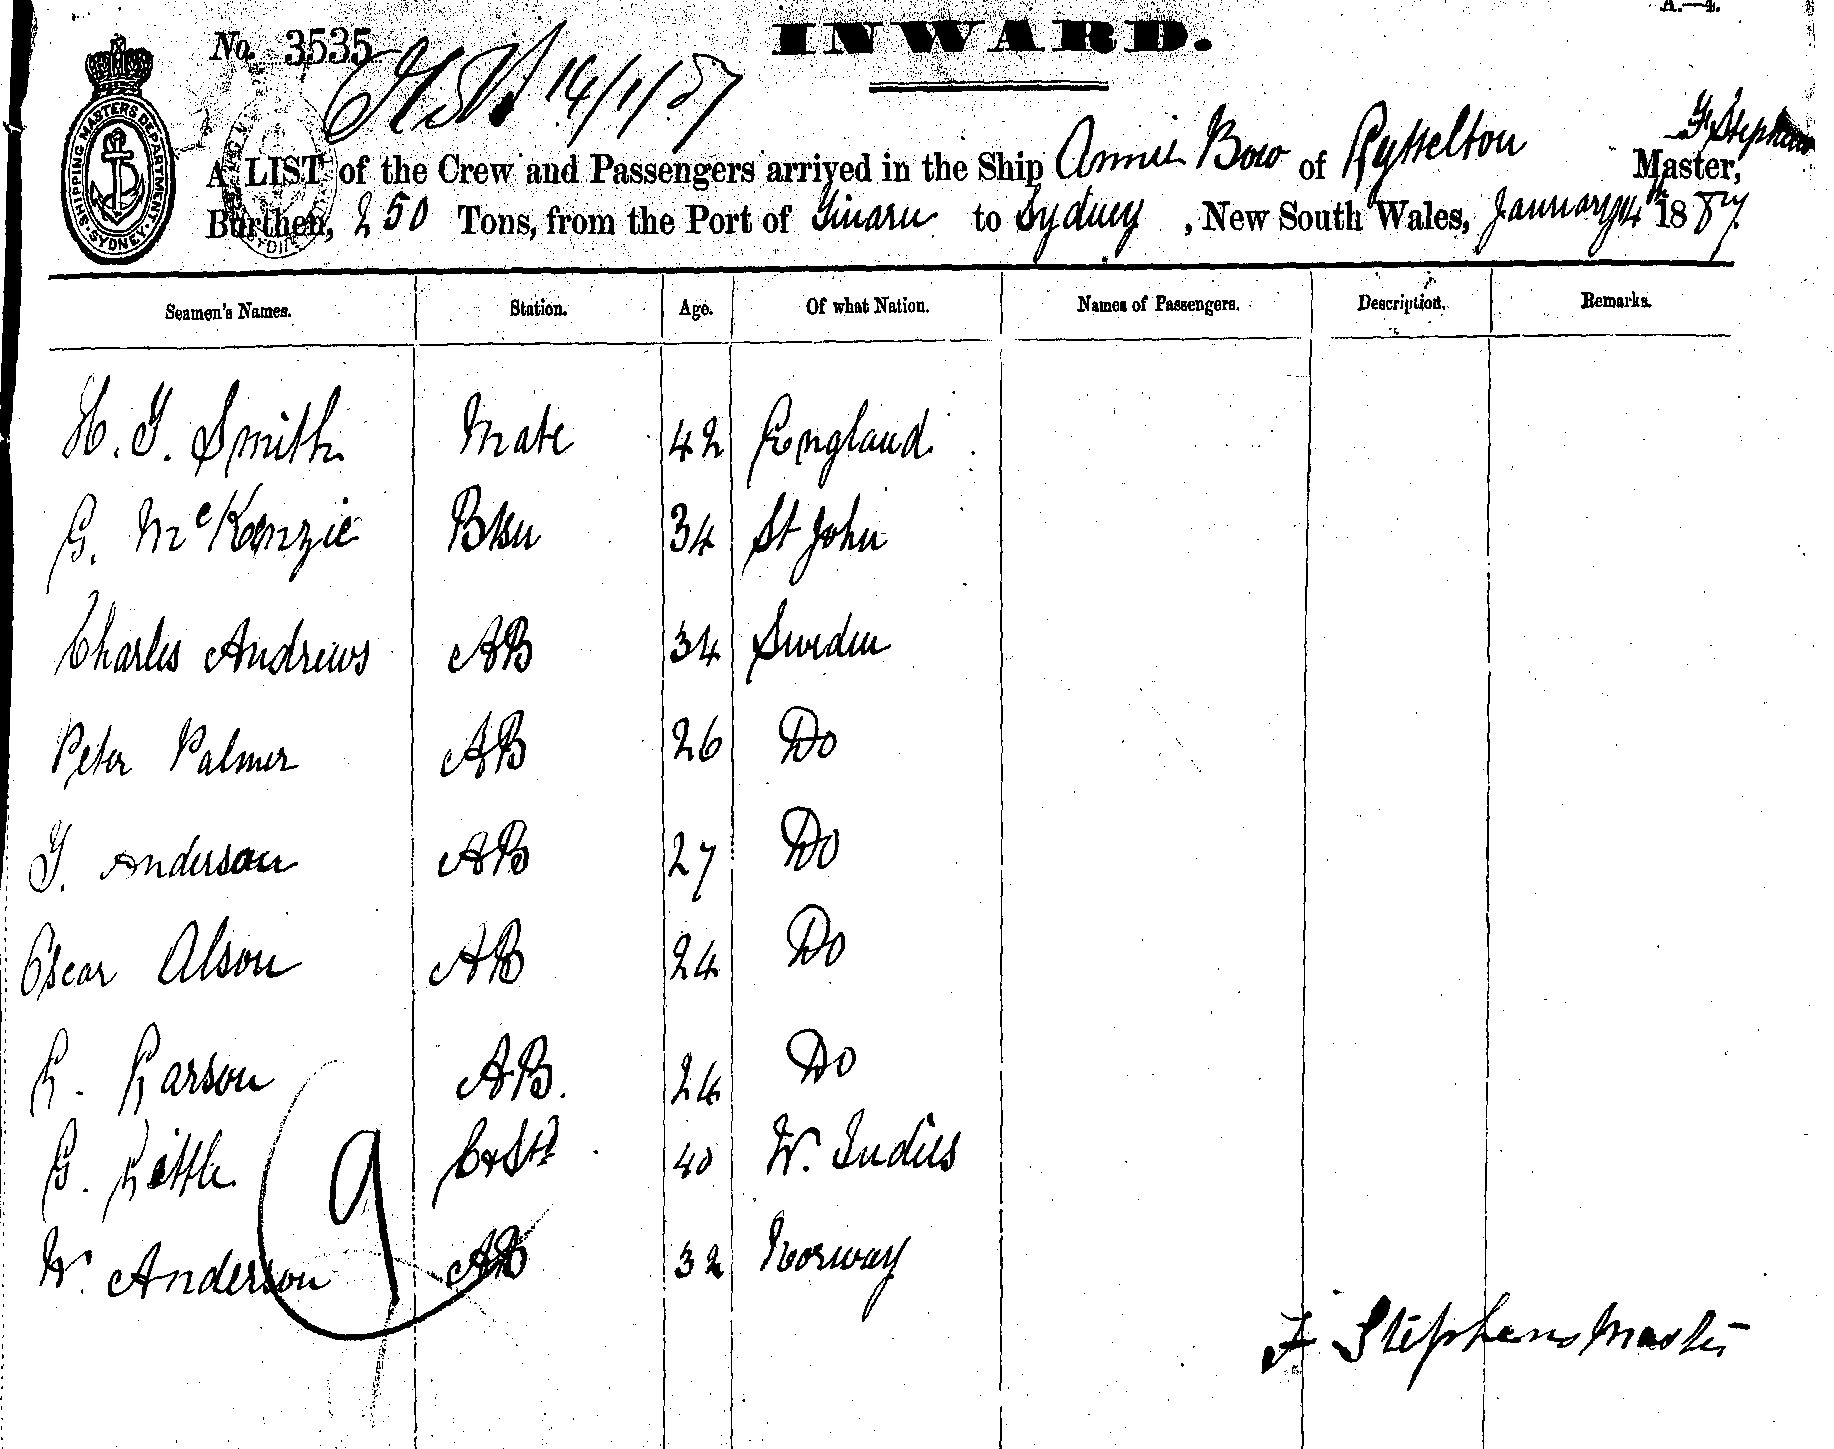 A.—4.
INWARD.
No. 3535
14/1/87
SHIPPING MASTERS DEPARTMENT SYDNEY
F. Stephens
A LIST of the Crew and Passengers arrived in the Ship Annie Bow of Lyttelton Master,
Burthen, 250 Tons, from the Port of Timaru to Sydney, New South Wales, January 14th 1887
Seamen's Names. Station. Age. Of what Nation. Names of Passengers. Description. Remarks.
H. J. Smith Mate 42 England
G. McKenzie Bsn 34 St John
Charles Andrews AB 34 Sweden
Peter Palmer AB 26 Do
J. Anderson AB 27 Do
Oscar Olson AB 24 Do
L. Larson AB. 24 Do
G. Kettle 40 W. Indies
W. Anderson AB 32 Norway
9
F. Stephens Master